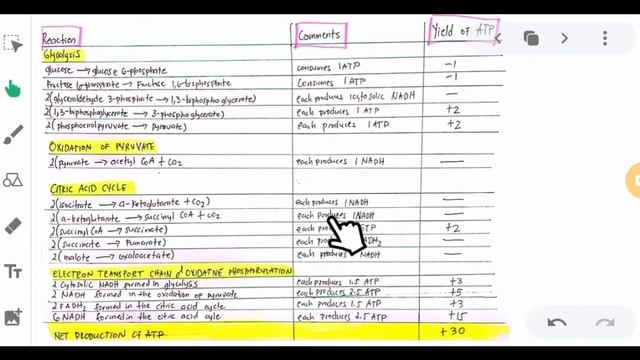 Reaction Comments Yield of ATP
Glycolysis
glucose → glucose 6-phosphate consumes 1 ATP -1
fructose 6-phosphate → Fructose 1,6-bisphosphate Consumes 1 ATP -1
2(glyceraldehyde 3-phosphate → 1,3-biphosphoglycerate) each produces 1 cytosolic NADH —
2(1,3-biphosphoglycerate → 3-phosphoglycerate) each produces 1 ATP +2
2(phosphoenolpyruvate → pyruvate) each produces 1 ATP +2
OXIDATION OF PYRUVATE
2(pyruvate → acetyl CoA + CO2 each produces 1 NADH —
CITRIC ACID CYCLE
2(isocitrate → α-Ketoglutarate + CO2) each produces 1 NADH —
2(α-ketoglutarate → succinyl CoA + CO2 each produces 1 NADH —
2(succinyl CoA → succinate) each TP +2
2(succinate → Fumarate) each ADH2 —
2(malate → oxaloacetate) each NADH —
ELECTRON TRANSPORT CHAIN & OXIDATIVE PHOSPHORYLATION
2 Cytosolic NADH formed in glycolysis each produces 1.5 ATP +3
2 NADH formed in the oxidation of pyruvate each produces 2.5 ATP +5
2 FADH2 formed in the citric acid cycle each produces 1.5 ATP +3
6 NADH formed in the citric acid cyle each produces 2.5 ATP +15
NET PRODUCTION OF ATP +30